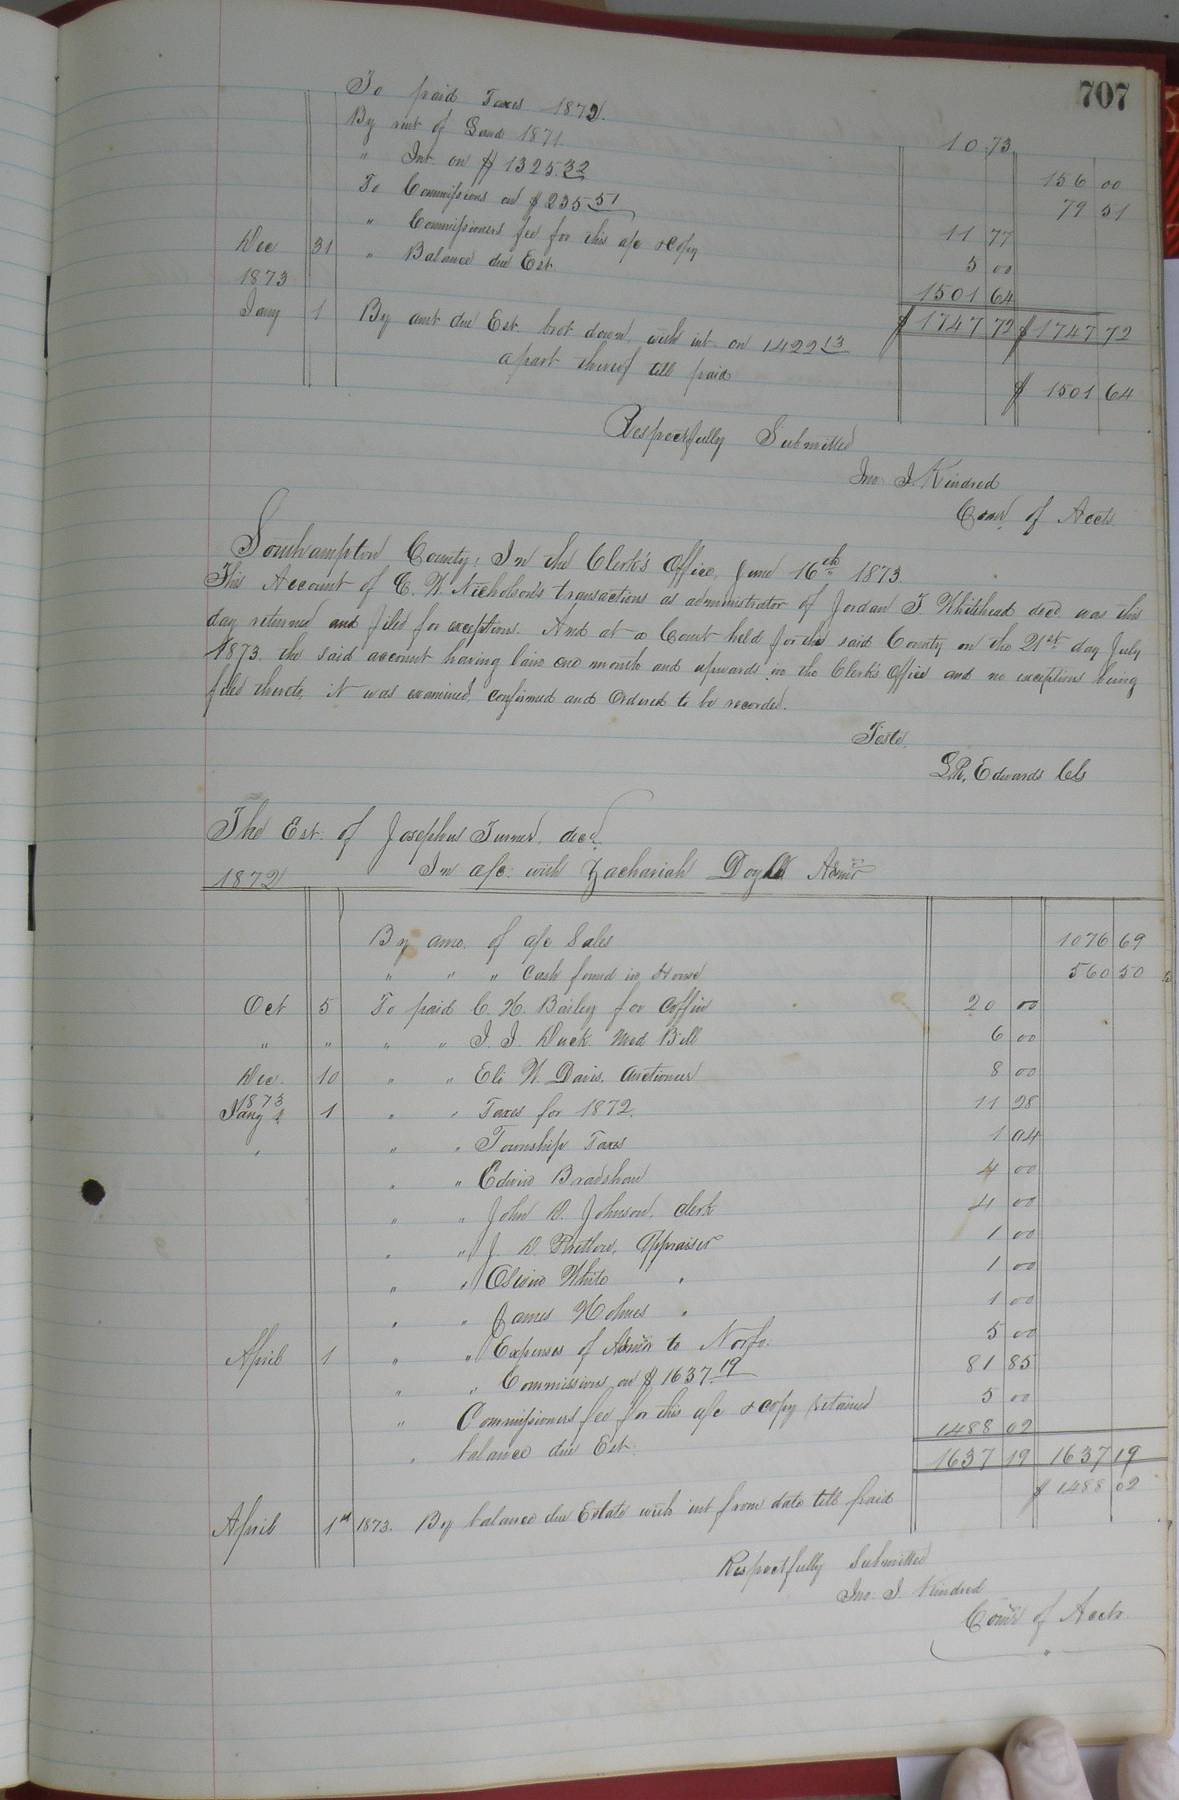 707
To paid Taxes 1872. 10 73
By rent of Land 1871. 156 00
" Int. on $1325.32 79 51
To Commissions on $235.51 11 77
" Commissioners fee for this a/c & copy 5 00
Dec 31 " Balance due Est. 1501 64
$1747 72 $1747 72
1873
Jany 1 By amt due Est. brot down, with int. on 1422.13
apart thereof till paid $1501 64
Respectfully Submitted
Jno. J. Kindred
Comr of Accts
Southampton County; In the Clerk's Office, June 16th 1873.
This Account of C. W. Nicholson's transactions as administrator of Jordan T Whitehead decd. was this
day returned and filed for exceptions. And at a Court held for the said County on the 21st day July
1873. the said account having lain one month and upwards in the Clerk's Office and no exceptions being
filed thereto, it was examined, confirmed and Ordered to be recorded.
Teste.
L.R. Edwards Clk
The Est. of Josephus Turner, decd.
In a/c. with Zachariah Doyle Admr
1872
By amo. of a/c Sales 1076 69
" " " Cash found in House 560 50
Oct 5 To paid C. H. Bailey for Coffin 20 00
" " " " J. J. Duck. Med Bill 6 00
Dec. 10 " " Eli W. Davis. Auctioneer 8 00
1873
Jany 1 1 " " Taxes for 1872. 11 28
" " " Township Taxes 1 04
" " Edwin Bradshaw 4 00
" " John D. Johnson. clerk 4 00
" " J. D. Pretlow, Appraiser 1 00
" " White " 1 00
" " James Holmes " 1 00
April 1 " " Expenses of Admr to Norfo. 5 00
" " Commissions on $1637.19 81 85
" Commissioners fee for this a/c & copy retained 5 00
" balance due Est. 1488 02
1637 19 1637 19
April 1st 1873. By balance due Estate with int from date till paid $1488 02
Respectfully Submitted
Jno. J. Kindred
Comr of Accts.